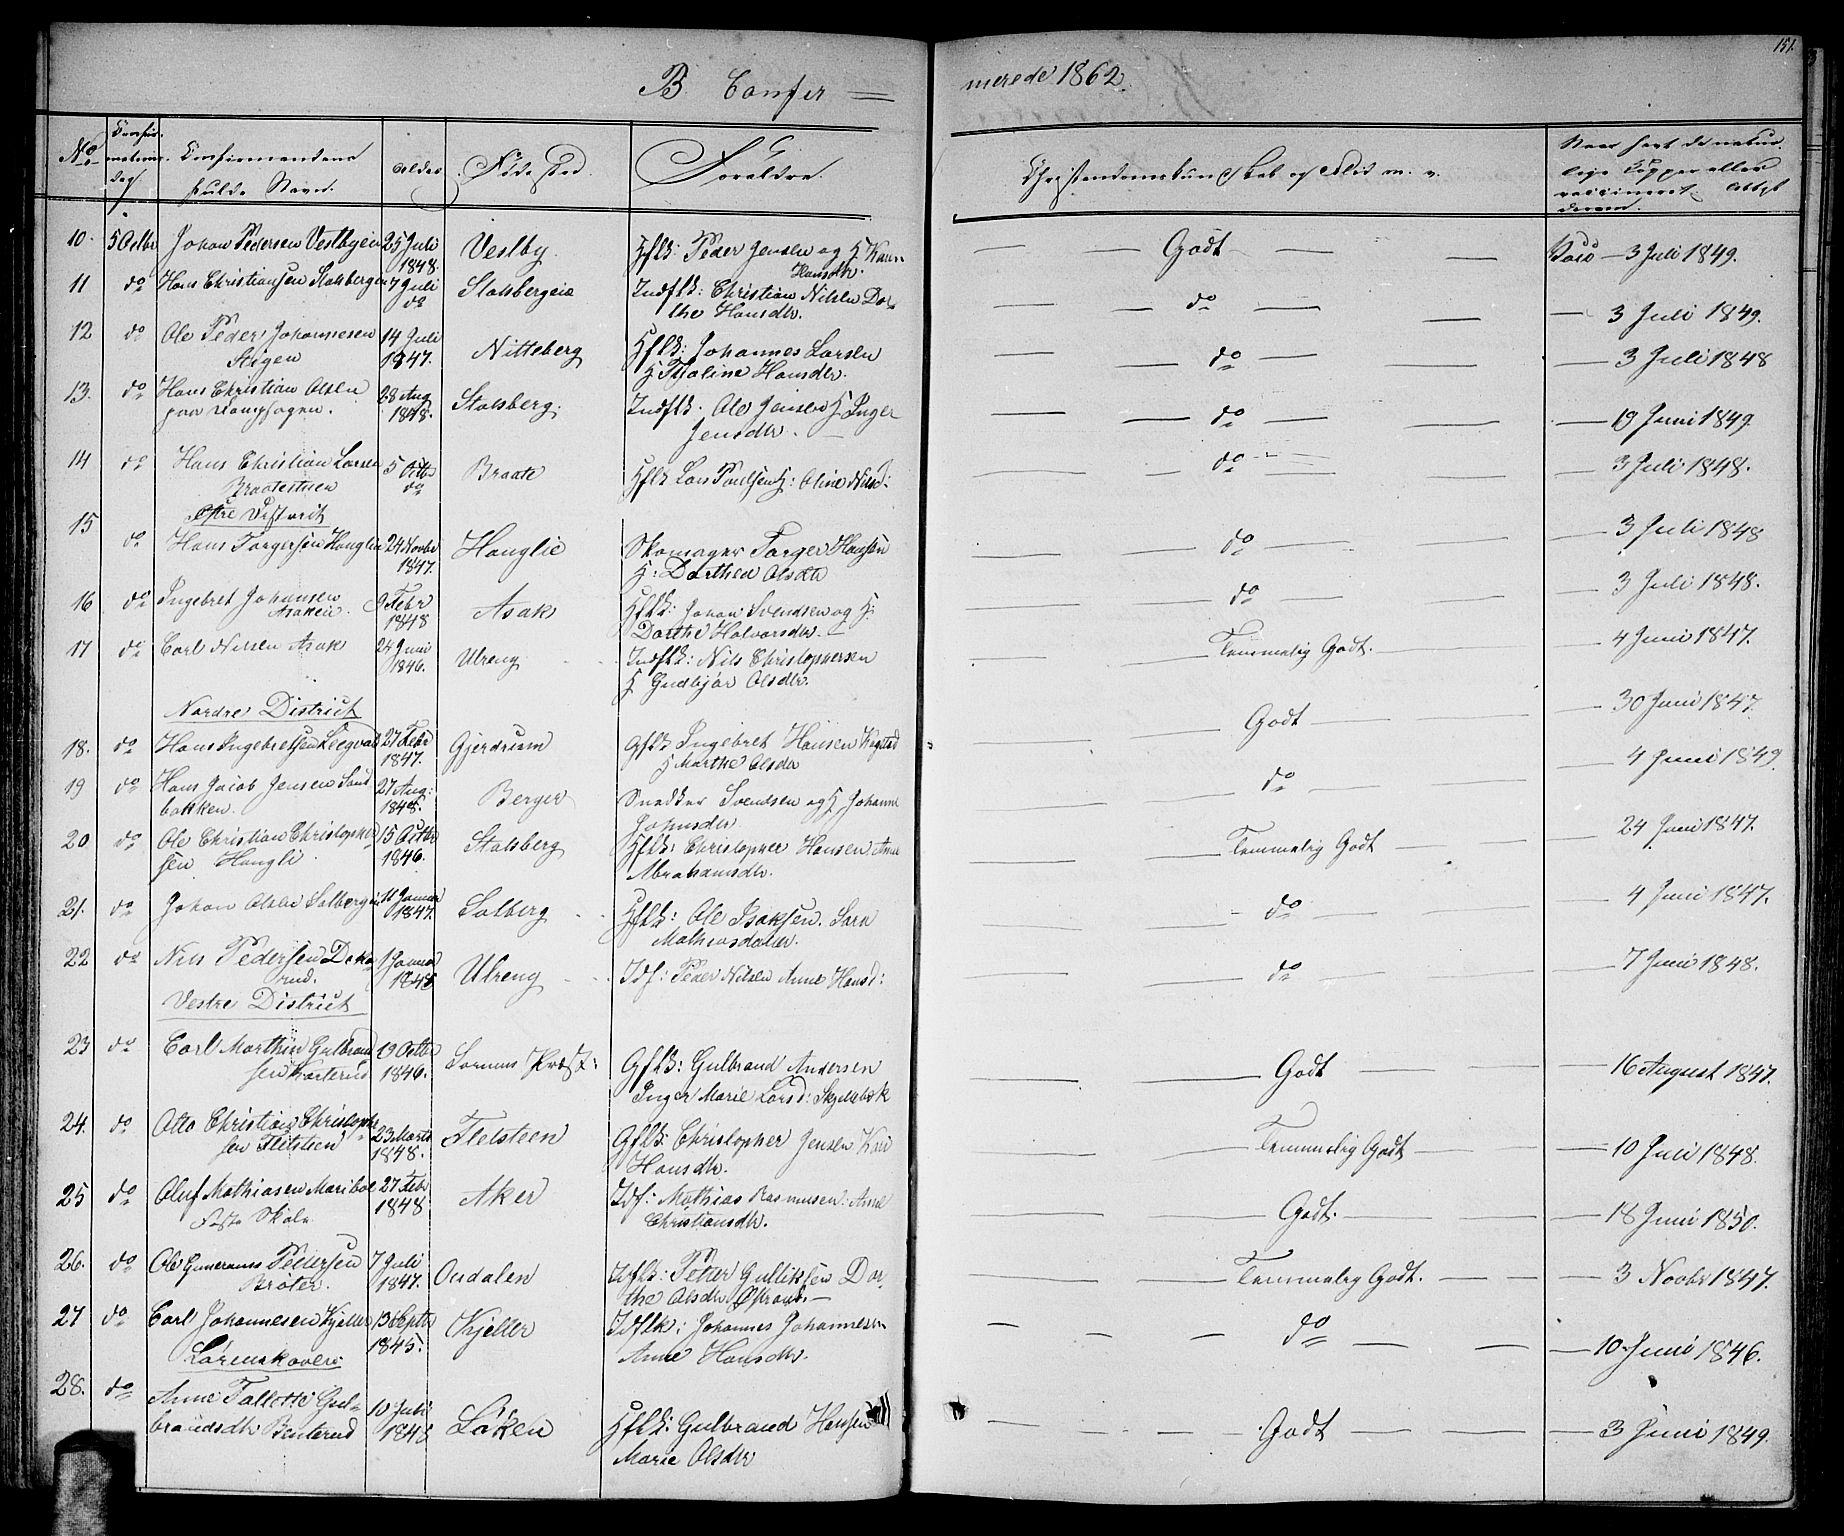 151.
B. Confir=
merede 1862.
No
Confir-
mations-
dag
Confirmandens
fulde Navn.
Alder
Føde Sted.
Forældre.
Christendomskundskab og Flid m. v.
Naar havt de natur-
lige Kopper eller
vaccineret. Attest
derom.
10. 5 Octbr Johan Pedersen Vestbyen 25 Juli 1848. Vestby. Hflk: Peder Jensen og H Karen Hansdtr. Godt Vacc 3 Juli 1849.
11 do Hans Christiansen Stalsbergeie 7 Juli do Stalsbergeie Indflk: Christian Nilsen Dor-
the Hansdtr. do 3 Juli 1849.
12 do Ole Peder Johannesen
Stigen 14 Juli 1847. Nitteberg Hflk: Johannes Larsen
H Thaline Hansdtr. do 3 Juli 1848
13. do Hans Christian Olsen
paa 28 Aug 1848. Stalsberg. Indflk. Ole Jensen H Inger
Jensdtr. do 19 Juni 1849.
14 do Hans Christian Larsen
Braatestuen 5 Octbr do Braate Hflk Lars Paulsen H: Oline Nilsd: do 3 Juli 1848.
Østre District
15 do Hans Torgersen Hauglie 24 Novbr 1847. Hauglie Skomager Torger Hansen
H: Dorthea Olsdtr do 3 Juli 1848
16 do Ingebret Johansen
Asakeie. 9 Febr 1848 Asak Hflk: Johan Svendsen og H:
Dorthe Halvorsdtr. do 3 Juli 1848.
17 do Carl Nilsen Asak 24 Juni 1846. Ulreng Indflk: Nils Christophersen
H Gudbjør Olsdtr. Temmelig Godt. 4 Juni 1847.
Nordre District
18. do Hans Ingebretsen Leegvad 27 Febr 1847. Gjerdrum Gflk Ingebret Hansen
H Marthe Olsdtr Godt 30 Juni 1847.
19 do Hans Jacob Jensen Sand
bakken. 27 Aug: 1848. Berger Snedker Svendsen og H Johanne
Johnsdtr do 4 Juni 1849.
20 do Ole Christian Christopher
sen Haugli. 15 Octbr 1846. Stalsberg Hflk: Christopher Hansen Anne
Abrahamsdtr. Temmelig Godt 24 Juni 1847.
21. do Johan Olsen Solbergeie 11 Januar 1847. Solberg Hflk: Ole Isaksen. Sara
Mathiasdatter. do 4 Juni 1847.
22 do Nils Pedersen
rud. 1 Januar 1848 Ulreng Idf: Peder Nilsen Anne Hansd: do 7 Juni 1848.
Vestre District
23 do Carl Marthin Gulbrand
sen 19 Octbr 1846. Sørums Præst: Gflk: Gulbrand Andersen
Inger Marie Larsd: Godt 16 August 1847.
24. do Otto Christian Christoph
sen Fletsteen 23 Marts 1848. Fletsteen Gflk: Christopher Jensen Kari
Hansdtr. Temmelig Godt 10 Juli 1848.
25 do Oluf Mathiasen Mariboe
Skole 27 Febr 1848 Aker Idf: Mathias Rasmusen: Anne
Christiansdtr. Godt. 18 Juni 1850.
26. do Ole Gunerams Pedersen
Brøter. 7 Juli 1847. Oudalen Idflk: Petter Gulliksen Dor-
the Olsdtr Temmelig Godt. 3 Novbr 1847.
27 do Carl Johannesen Kjeller 13 Septbr 1845. Kjeller Idflk: Johannes Johannesen
Anne Hansdtr. do 10 Juni 1846.
Lørenskoven
28. do Anne Gul-
brandsdtr 10 Juli 1848 Løken Hflk: Gulbrand Hansen
Marie Olsdtr Godt 3 Juni 1849.